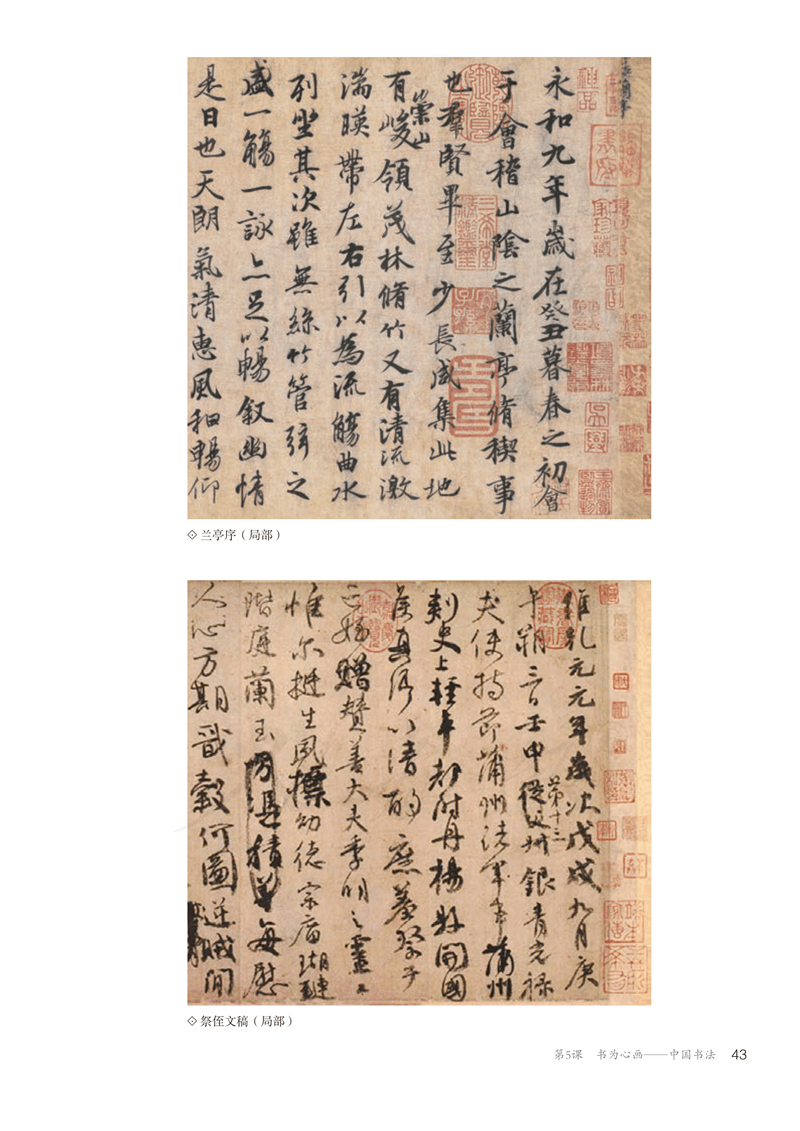 永和九年歲在癸丑暮春之初會
于會稽山陰之蘭亭脩禊事
也羣賢畢至少長咸集此地
有崇山峻領茂林脩竹又有清流激
湍暎帶左右引以為流觴曲水
列坐其次雖無絲竹管弦之
盛一觴一詠亦足以暢叙幽情
是日也天朗氣清惠風和暢仰
兰亭序（局部）
維乾元元年歲次戊戌九月庚
午朔三日壬申第十三從父銀青光祿
夫使持節蒲州諸軍事蒲州
刺史上輕車都尉丹楊縣開國
侯真卿以清酌庶羞祭于
亡姪贈贊善大夫季明之靈曰
惟爾挺生夙標幼德宗廟瑚璉
階庭蘭玉方憑積善每慰
人心方期戩穀何圖逆賊閒
祭侄文稿（局部）
第5课 书为心画——中国书法 43